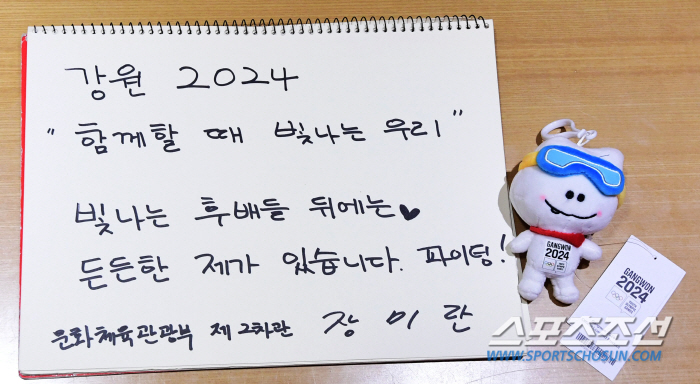 강원 2024
"함께할 때 빛나는 우리"
빛나는 후배들 뒤에는♥
든든한 제가 있습니다. 파이팅!
문화체육관광부 제2차관 장미란
GANGWON
2024
GANGWON
2024
스포츠조선
WWW.SPORTSCHOSUN.COM